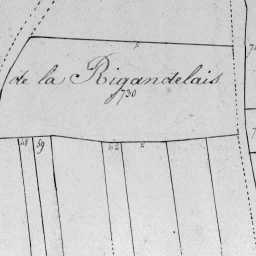 de la Rigandelais
730
59
62